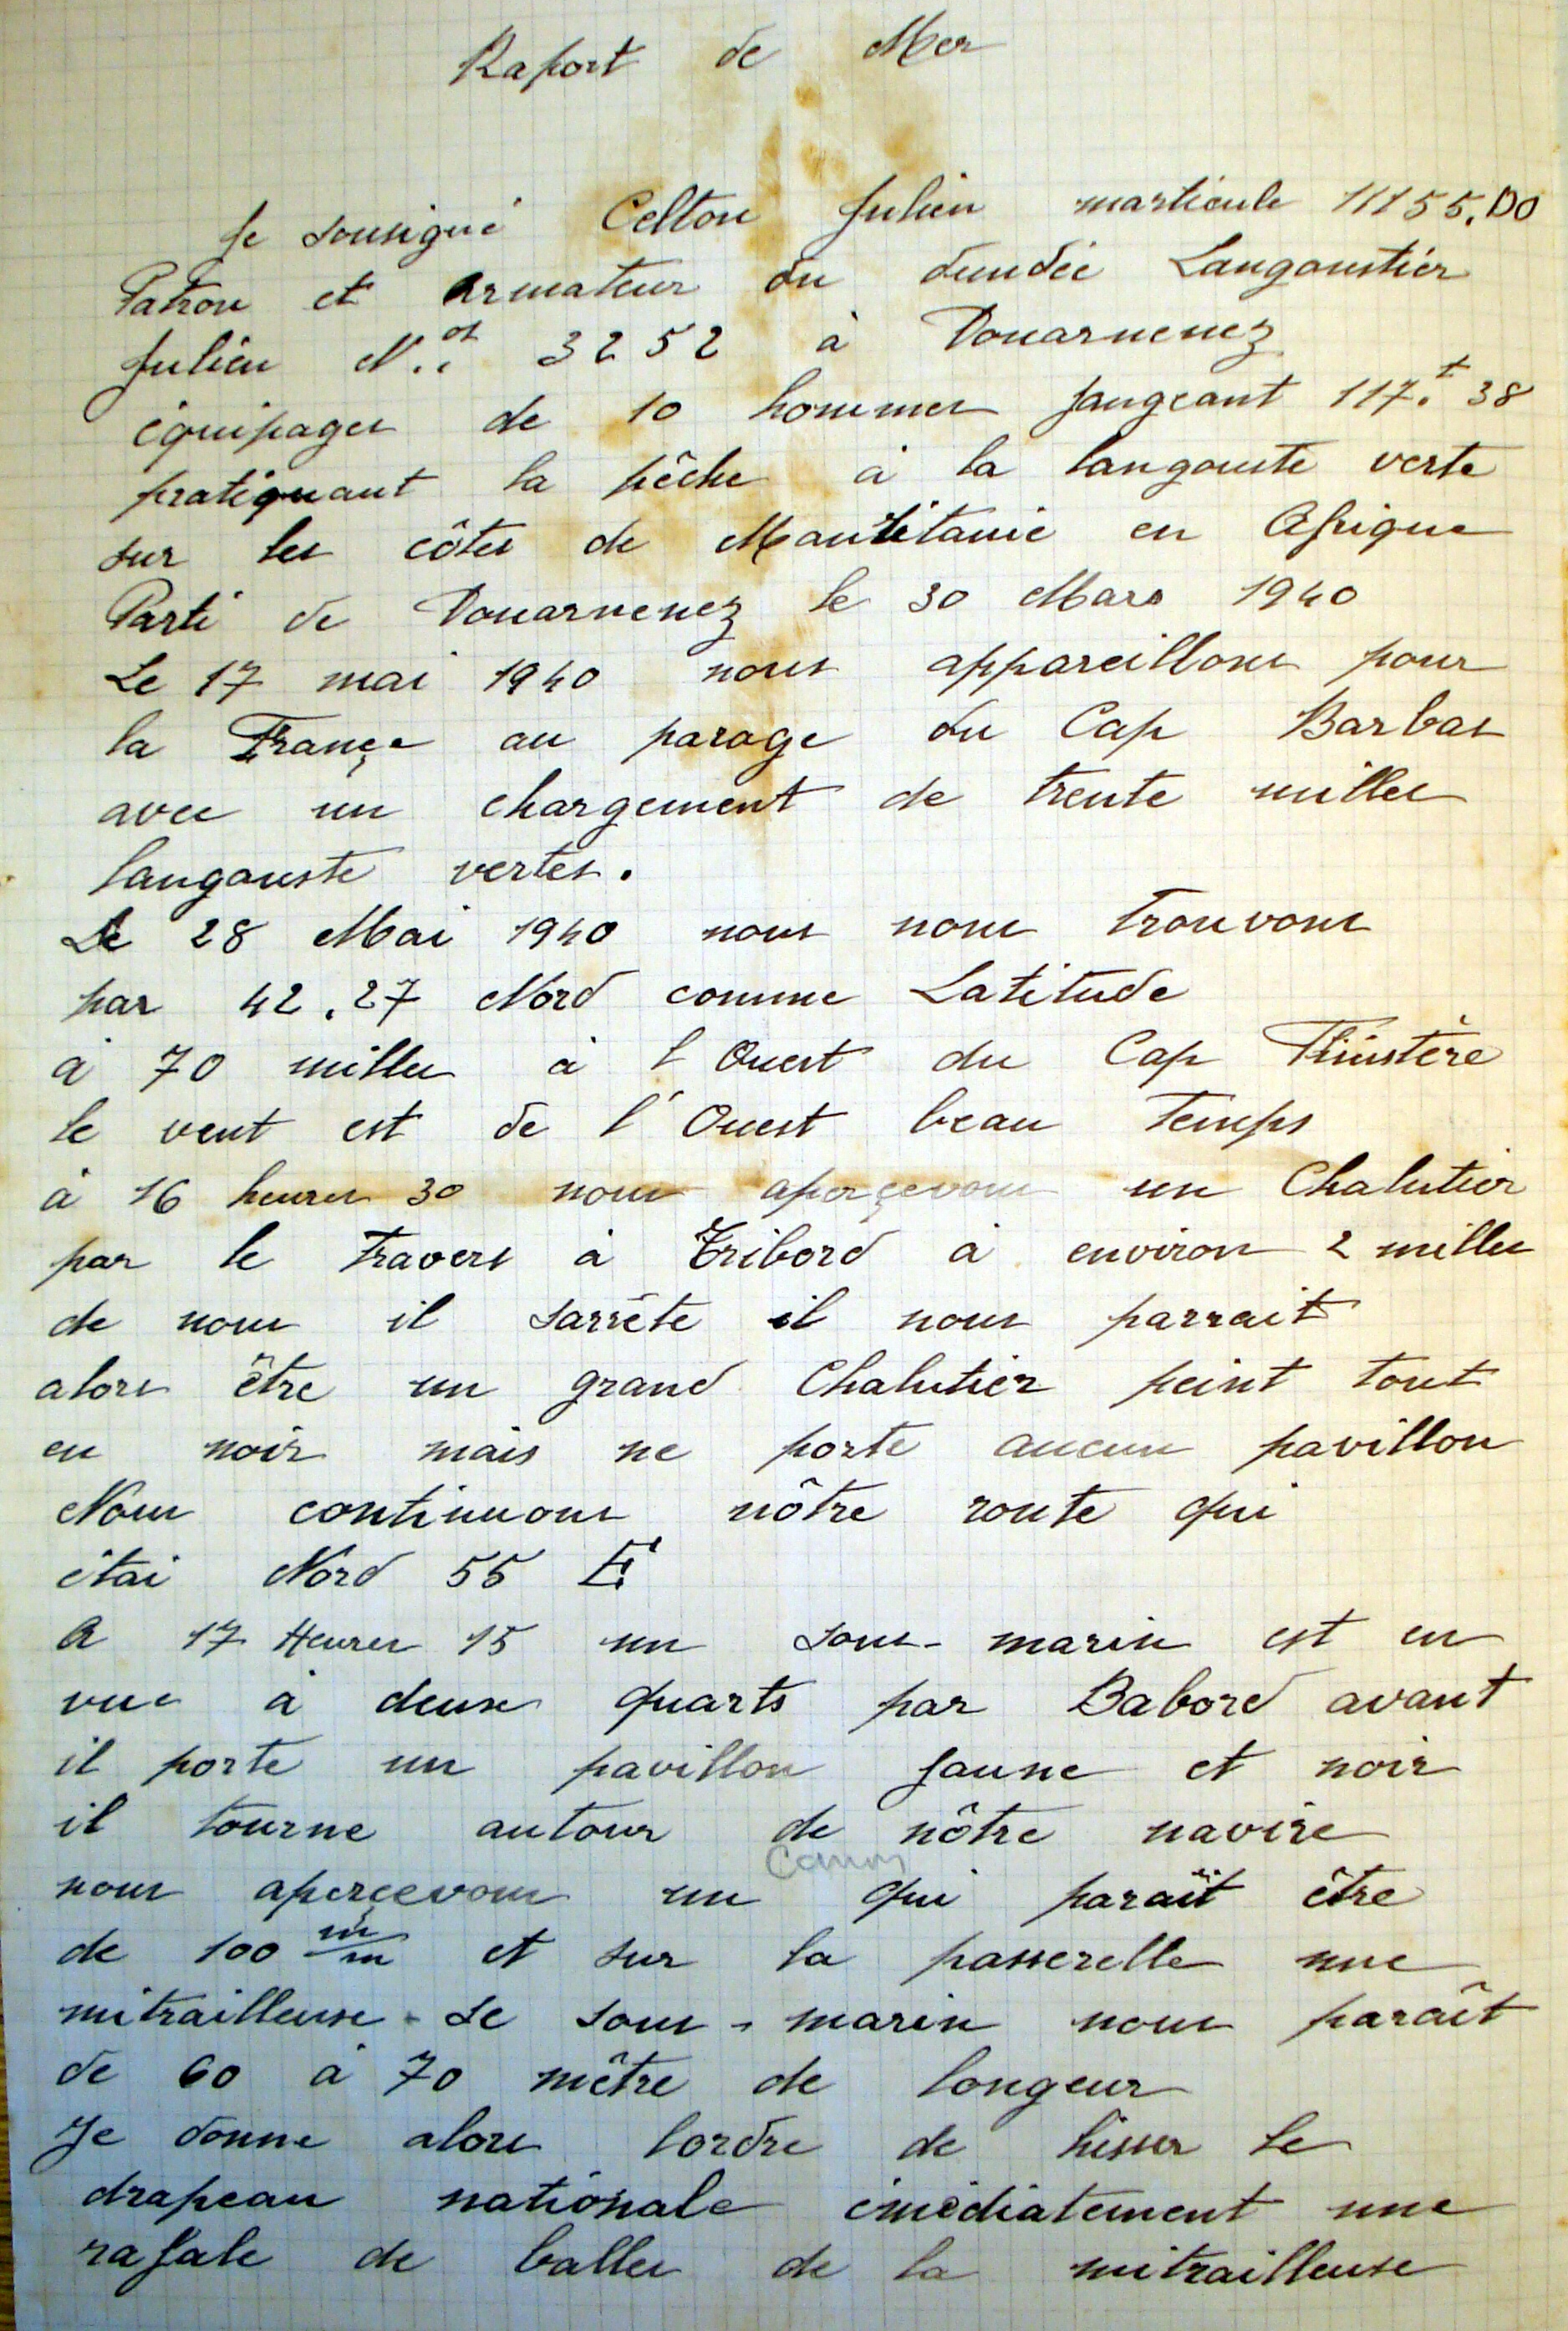 Raport de Mer
Je sousigné Celton Julien marticule 11155.DO
Patron et Armateur du dundée Langoustier
Julien N.os 3252 à Douarnenez
équipages de 10 hommes jaugeant 117.t 38
pratiquant la pêche à la langouste verte
sur les côtes de Mauritanie en Afrique
Parti de Douarnenez le 30 Mars 1940
Le 17 mai 1940 nous appareillons pour
la Françe au parage du Cap Barbas
avec un chargement de trente milles
langouste vertes.
Le 28 Mai 1940 nous nous trouvons
par 42.27 Nord comme Latitude
à 70 milles à l Ouest du Cap Finistère
le vent est de l'Ouest beau Temps
à 16 heures 30 nous aperçevons un Chalutier
par le Travers à Tribord à environ 2 milles
de nous il sarrête il nous parrait
alors être un grand Chalutier peint tout
en noir mais ne porte aucun pavillon
Nous continuons nôtre route qui
étai Nord 55 E
A 17 Heures 15 un sous-marin est en
vue à deuse quarts par Babord avant
il porte un pavillon jaune et noir
il tourne autour de nôtre navire
nous aperçevons un canon qui paraît être
de 100 m/m et sur la passerelle une
mitrailleuse. Le sous-marin nous paraît
de 60 à 70 mètre de longeur
Je donne alors lordre de hisser le
drapeau nationale émédiatement une
rafale de balles de la mitrailleuse